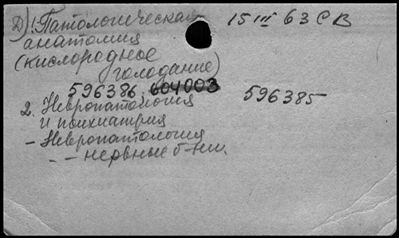 Д) 1. Патологическая 15 III 63 СВ
анатомия
(кислородное
голодание)
596386, 604003 596385
2. Невропатология
и психиатрия
- Невропатология
- - нервные б-ни.